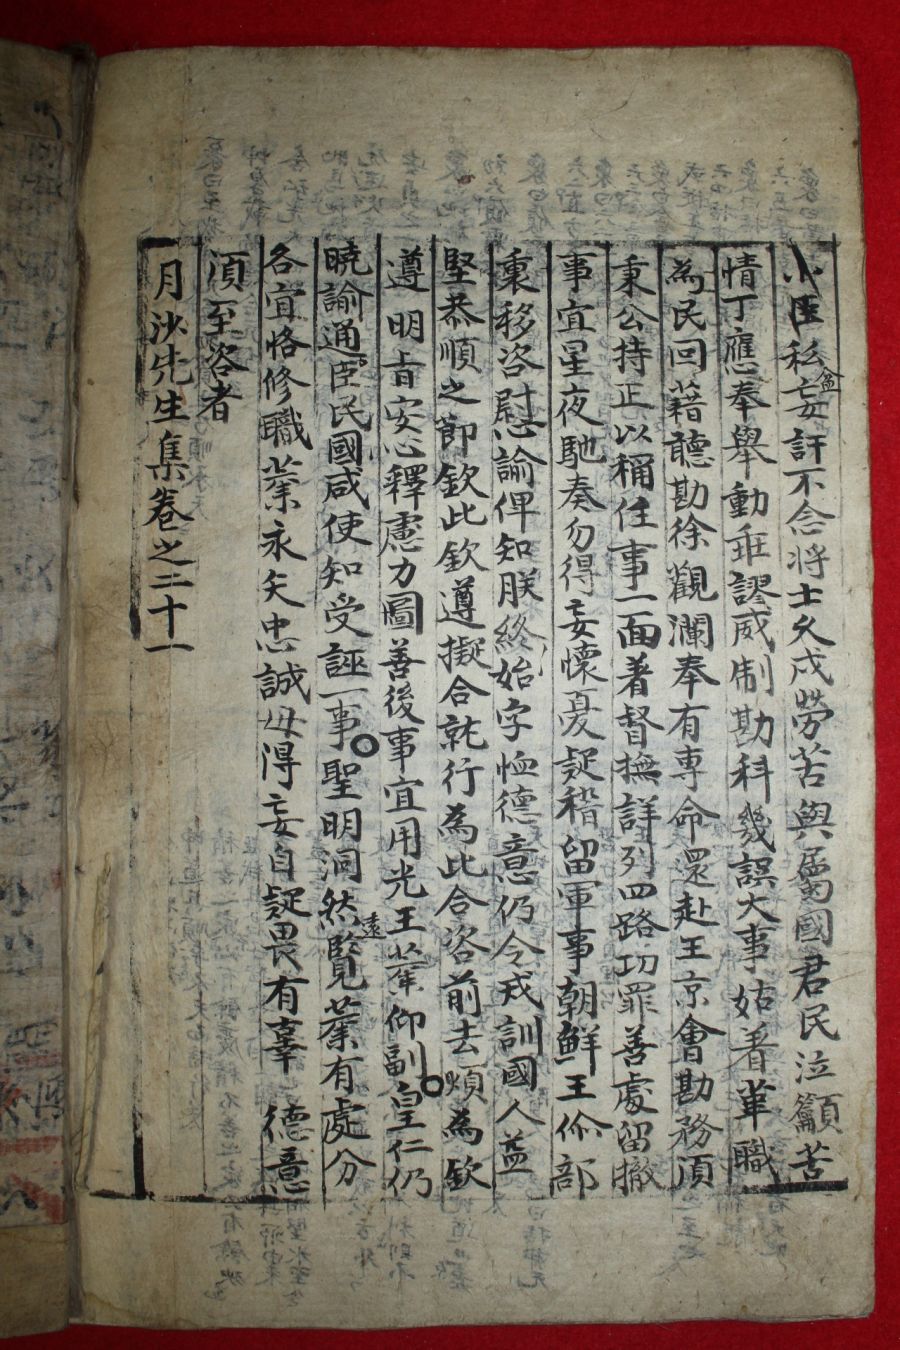 小臣私忿妄訐不念將士久戍勞苦與屬國君民泣籲苦
情丁應奉舉動乖謬威制勘科幾誤大事姑着革職
為民回藉聽勘徐觀瀾奉有專命還赴王京會勘務須
秉公持正以稱任事一面着督撫詳列四路功罪善處留撤
事宜星夜馳奏勿得妄懷憂疑稽留軍事朝鮮王你部
裏移咨慰諭俾知朕終始字恤德意仍令戎訓國人益
堅恭順之節欽此欽遵擬合就行為此合咨前去煩為欽
遵明旨安心釋慮力圖善後事宜用光王業仰副皇仁仍
曉諭通國臣民咸使知受誣一事聖明洞然覽奏有處分
各宜恪修職業永矢忠誠毋得妄自疑畏有辜德意
須至咨者
月沙先生集卷之二十一